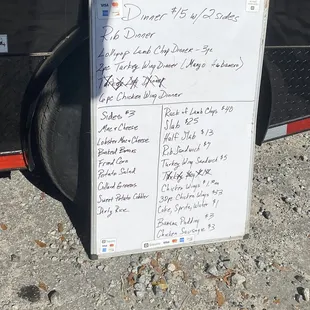 VISA
Dinner $15 w/2 sides
Rib Dinner
Lollipop Lamb Chop Dinner - 3pc
2pc Turkey Wing Dinner (Mango Habanero)
6pc Chicken Wing Dinner
Sides $3
Mac n Cheese
Lobster Mac n Cheese
Baked Beans
Fried Corn
Potato Salad
Collard Greens
Sweet Potato Cobbler
Dirty Rice
Rack of Lamb Chops $40
Slab $25
Half Slab $13
Rib Sandwich $7
Turkey Wing Sandwich $5
Chicken Wings
Coke, Sprite, Water $1
Banana Pudding $3
Chicken Sausage $3